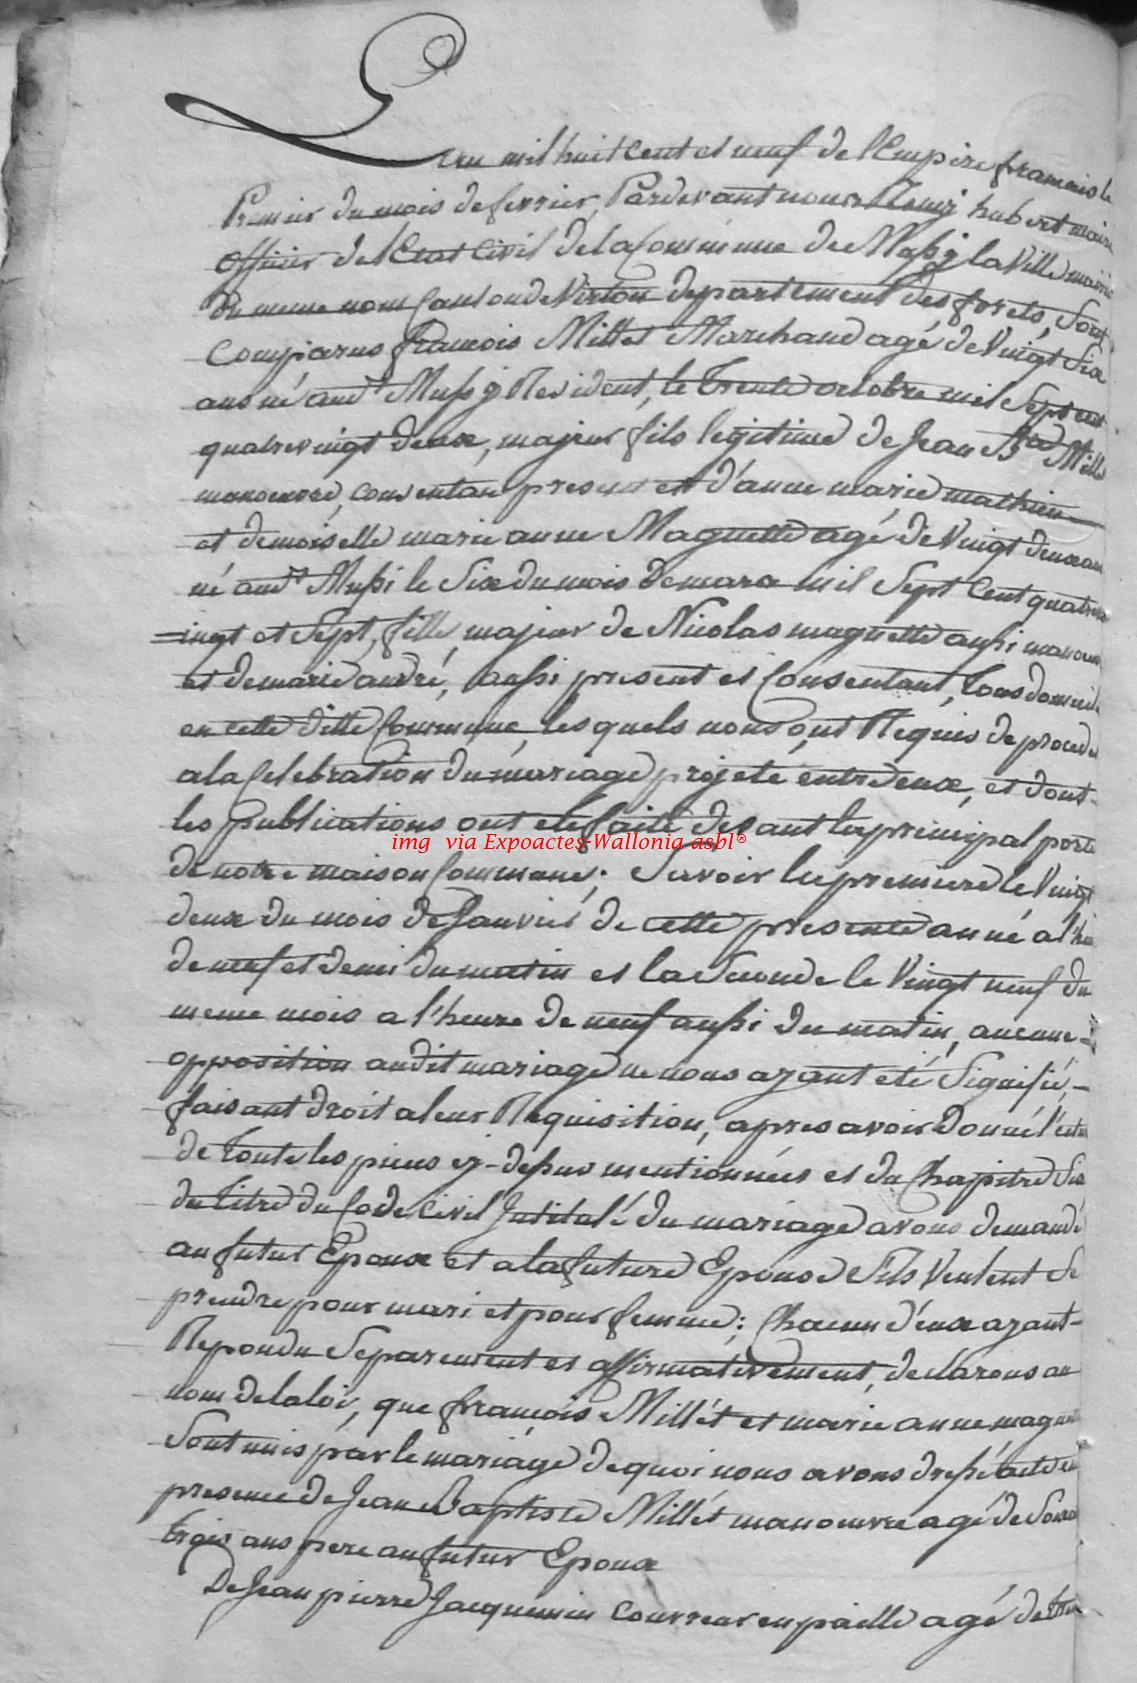 L'an mil huit Cent et neuf de l'Empire francais le
Premier du mois de fevrier, Pardevant nous Remy hubert maire
officier de l'Etat Civil de la Commune de Mussy la Ville mairie
du meme nom Canton de Virton departement des forets, Sont
Comparus francois Millet Marchand agé de Vingt Six
ans né aud.t Mussy Resident, le trente octobre mil Sept cent
quatrevingt deux, majeur fils legitime de Jean Bte Millet
manoeuvre, consentant present et d'anne marie mathieu
et demoiselle marie anne Maguette agé de Vingt deux ans
né aud.t Mussi le Six du mois de mars mil Sept Cent quatre
=ingt et Sept, fille, majeur de Nicolas maguette aussi manoeu
et de marie andré, aussi present et Consentant, tous domicili
en cette ditte Commune, les quels nous ont Requis de proceder
a la Celebration du mariage projeté entre deux, et dont
les publications ont été faite devant la principal porte
de notre maison Commune; Savoir la premiere le Vingt
deux du mois de Janvier de cette presente anné a l'heu
de neuf et demi du matin et la Seconde le Vingt neuf du
meme mois a l'heure de neuf aussi du matin, aucune
opposition audit mariage ne nous ayant eté Signifié,
faisant droit a leur Requisition, apres avoir Donné lectu
de toute les pieces cy-dessus mentionnées et du Chapitre Six
du titre du Code Civil Intitulé du mariage avons demandé
au futur Epoux et a la future Epouse S'ils Veulent Se
prendre pour mari et pour femme; Chacun d'eux ayant
Repondu Separement et affirmativement, declarons au
nom de la loi, que francois Millét et marie anne maguet
Sont unis par le mariage de quoi nous avons dressé acte en
presence de Jean Baptiste Millét manoeuvre agé de Soixa
trois ans pere au futur Epoux
De Jean pierre Jacquemin Couvreur en paille agé de tren
img via Expoactes-Wallonia asbl®